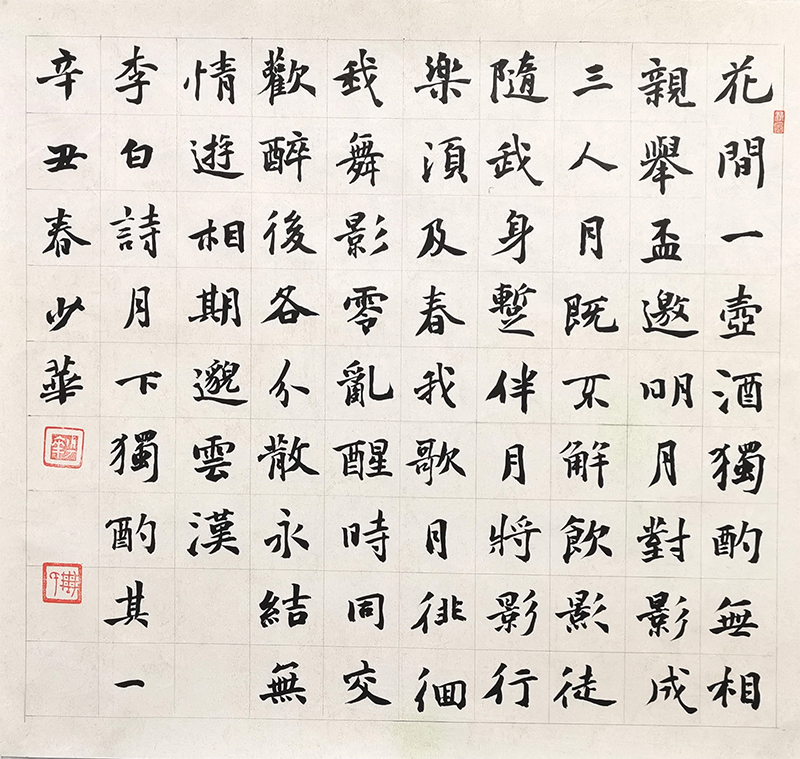 花間一壺酒獨酌無相
親舉盃邀明月對影成
三人月既不解飲影徒
隨我身蹔伴月將影行
樂須及春我歌月徘徊
我舞影零亂醒時同交
歡醉後各分散永結無
情遊相期邈雲漢
李白詩月下獨酌其一
辛丑春少華